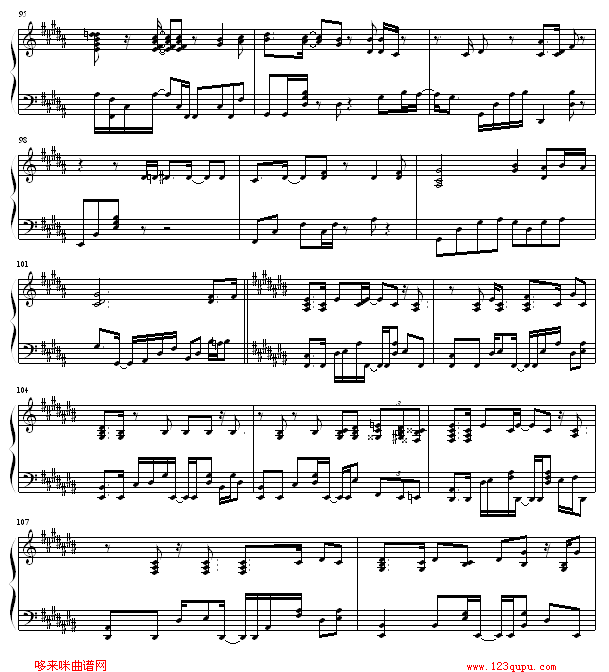 95
98
101
104
3
3
107
哆来咪曲谱网
www.123qupu.com